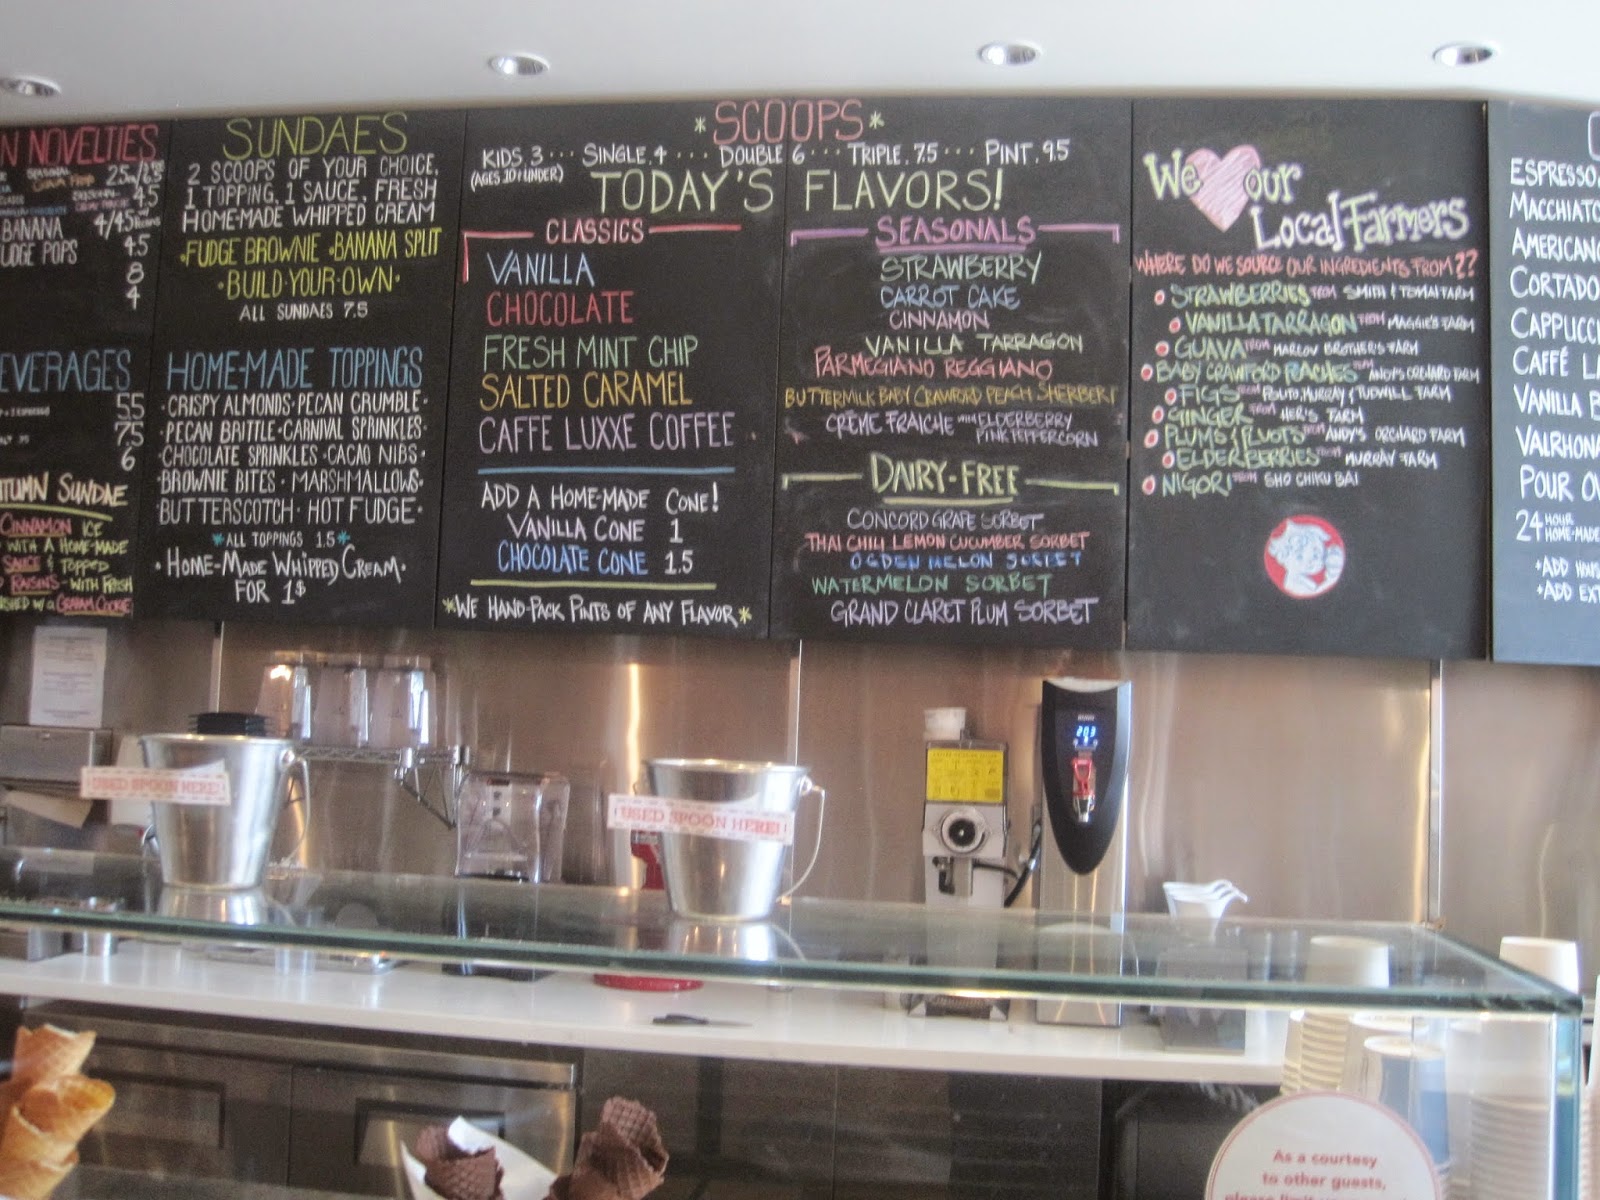 N NOVELTIES
SEASONAL
4.5
BANANA 4/4.5
UDGE POPS 4.5
8
4
EVERAGES
5.5
5
7.5
6
TUMN SUNDAE
CINNAMON ICE
WITH A HOME-MADE
SAUCE & TOPPED
RAISINS - WITH FRESH
GRAHAM COOKIE
SUNDAES
2 SCOOPS OF YOUR CHOICE,
1 TOPPING, 1 SAUCE, FRESH
HOME-MADE WHIPPED CREAM
·FUDGE BROWNIE ·BANANA SPLIT
·BUILD·YOUR·OWN·
ALL SUNDAES 7.5
HOME-MADE TOPPINGS
·CRISPY ALMONDS·PECAN CRUMBLE·
·PECAN BRITTLE·CARNIVAL SPRINKLES·
·CHOCOLATE SPRINKLES·CACAO NIBS·
·BROWNIE BITES·MARSHMALLOWS·
BUTTERSCOTCH·HOT FUDGE·
*ALL TOPPINGS 1.5*
·HOME-MADE WHIPPED CREAM·
FOR 1$
*SCOOPS*
KIDS.3 ··· SINGLE.4 ···· DOUBLE 6 ··· TRIPLE.7.5 ··· PINT.9.5
(AGES 10 & UNDER)
TODAY'S FLAVORS!
CLASSICS
VANILLA
CHOCOLATE
FRESH MINT CHIP
SALTED CARAMEL
CAFFE LUXXE COFFEE
ADD A HOME-MADE CONE!
VANILLA CONE 1
CHOCOLATE CONE 1.5
*WE HAND-PACK PINTS OF ANY FLAVOR*
SEASONALS
STRAWBERRY
CARROT CAKE
CINNAMON
VANILLA TARRAGON
PARMEGIANO REGGIANO
BUTTERMILK BABY CRAWFORD PEACH SHERBERT
CRÈME FRAICHE WITH ELDERBERRY
PINK PEPPERCORN
DAIRY-FREE
CONCORD GRAPE SORBET
THAI CHILI LEMON CUCUMBER SORBET
OGDEN MELON SORBET
WATERMELON SORBET
GRAND CLARET PLUM SORBET
We our
Local Farmers
WHERE DO WE SOURCE OUR INGREDIENTS FROM??
STRAWBERRIES FROM SMITH & TOMAI FARM
VANILLA TARRAGON FROM MAGGIE'S FARM
GUAVA FROM MARLOW BROTHER'S FARM
BABY CRAWFORD PEACHES FROM ANDY'S ORCHARD FARM
FIGS FROM POLITO, MURRAY & TUDWILL FARM
GINGER FROM HER'S FARM
PLUMS & PLUOTS FROM ANDY'S ORCHARD FARM
ELDERBERRIES FROM MURRAY FARM
NIGORI FROM SHO CHIKU BAI
ESPRESSO
MACCHIATO
AMERICANO
CORTADO
CAPPUCCI
CAFFÉ LA
VANILLA B
VALRHONA
POUR OV
24 HOUR
HOME-MADE
·ADD HOUS
·ADD EXT
USED SPOON HERE!
! USED SPOON HERE! !
203
As a courtesy
to other guests,
please limit your